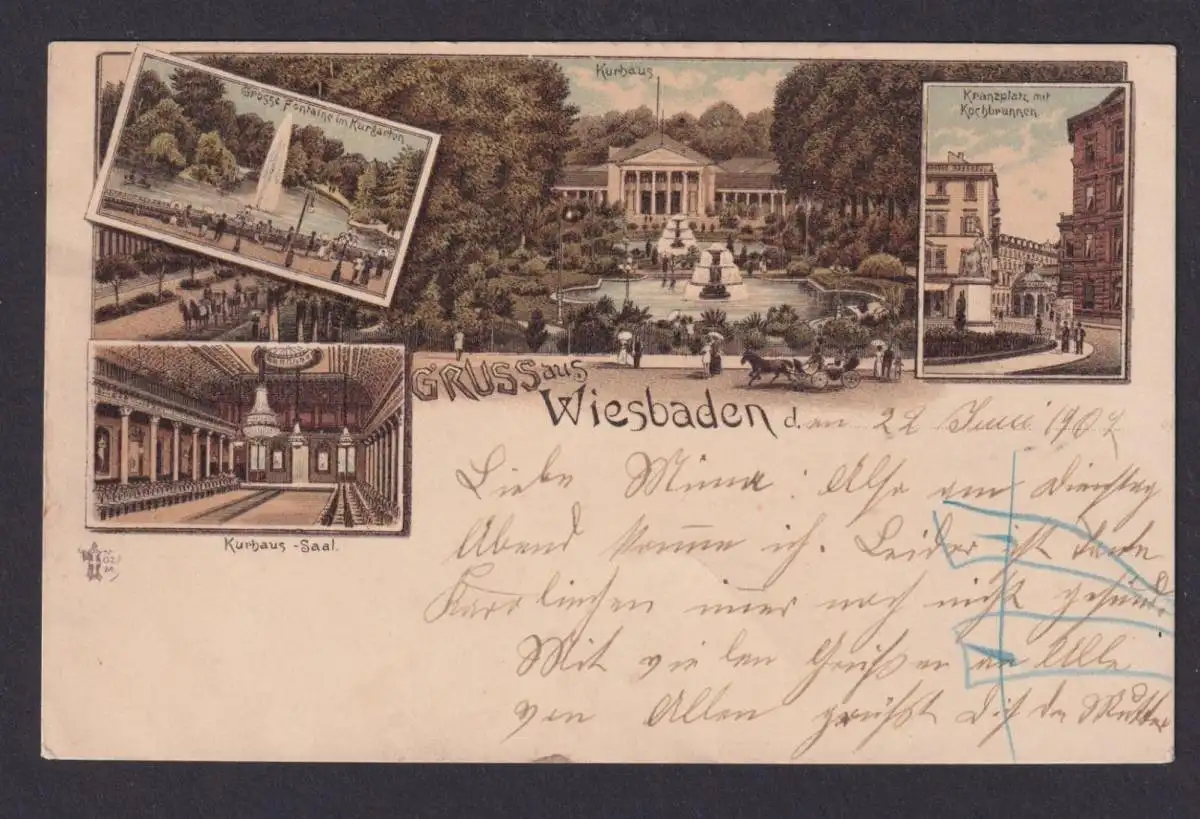 Grosse Fontaine im Kurgarten
Kurhaus
Kranzplatz mit
Kochbrunnen
GRUSS aus
Wiesbaden d. en 22 Juni 1907
Kurhaus-Saal.
Liebe Minna: Also am Dienstag
Abend komme ich. Leider ist Tante
Karolinchen imer noch nicht gesund
Mit vielen Grüßen an Alle
von Allen grüßt Dich die Mutter